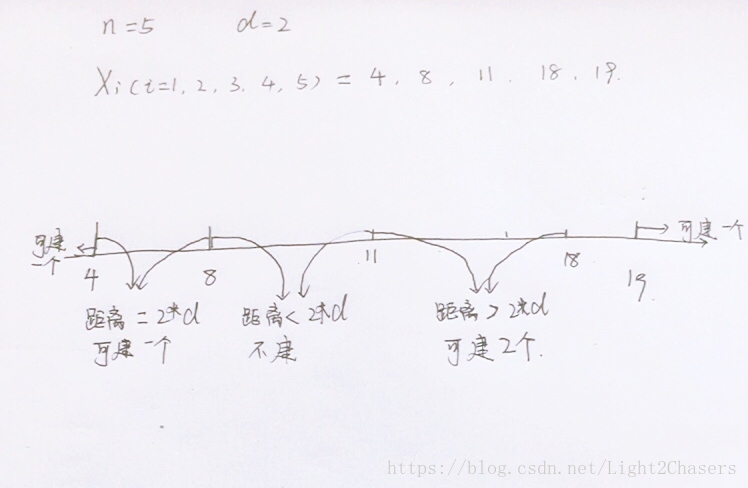 n=5 d=2
Xi(i=1,2,3,4,5) = 4, 8, 11, 18, 19.
可建一个
可建一个
4
8
11
18
19.
距离=2*d
可建一个
距离<2*d
不建
距离>2*d
可建2个.
https://blog.csdn.net/Light2Chasers